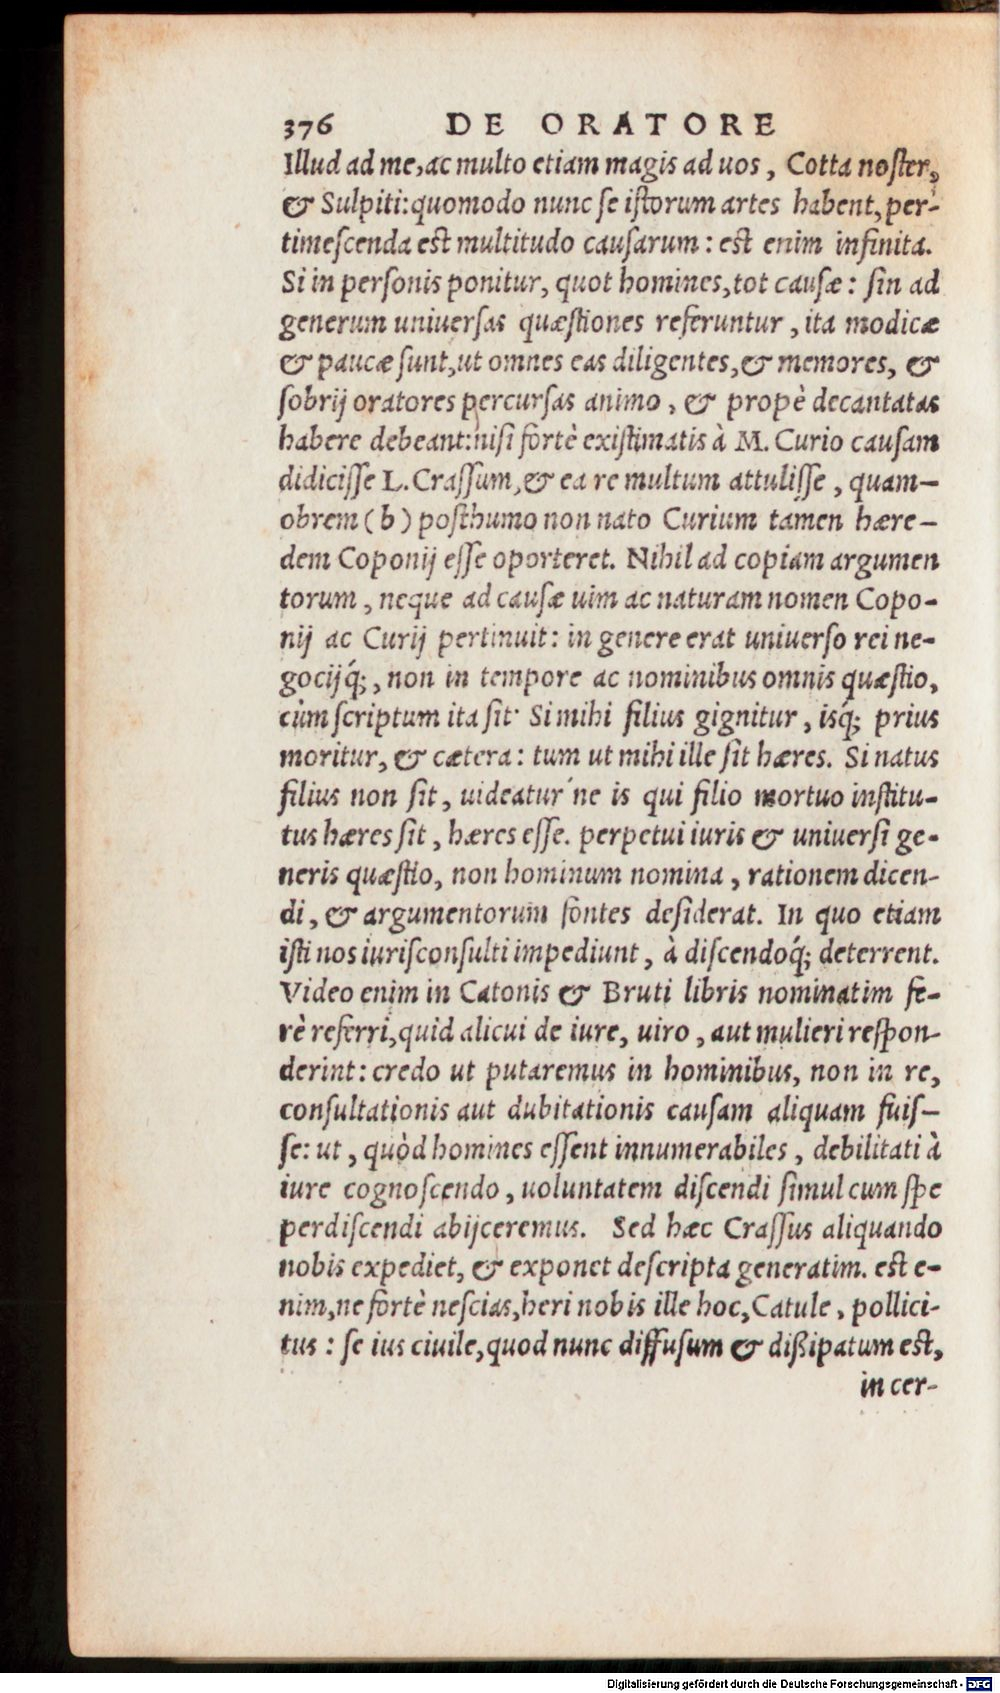 376 DE ORATORE
Illud ad me, ac multo etiam magis ad uos, Cotta noſter,
& Sulpiti: quomodo nunc ſe iſtorum artes habent, per-
timeſcenda est multitudo cauſarum: est enim infinita.
Si in perſonis ponitur, quot homines, tot cauſæ: ſin ad
generum uniuerſas quæſtiones referuntur, ita modicæ
& paucæ ſunt, ut omnes eas diligentes, & memores, &
ſobrij oratores percurſas animo, & propè decantatas
habere debeant: niſi fortè exiſtimatis à M. Curio cauſam
didiciſſe L. Craſſum, & ea re multum attuliſſe, quam-
obrem (b) poſthumo non nato Curium tamen hære-
dem Coponij eſſe oporteret. Nihil ad copiam argumen
torum, neque ad cauſæ uim ac naturam nomen Copo-
nij ac Curij pertinuit: in genere erat uniuerſo rei ne-
gocijq́;, non in tempore ac nominibus omnis quæſtio,
cùm ſcriptum ita ſit· Si mihi filius gignitur, isq́; prius
moritur, & cætera: tum ut mihi ille ſit hæres. Si natus
filius non ſit, uideatur ́ne is qui filio mortuo inſtitu-
tus hæres ſit, hæres eſſe. perpetui iuris & uniuerſi ge-
neris quæſtio, non hominum nomina, rationem dicen-
di, & argumentorum fontes deſiderat. In quo etiam
iſti nos iuriſconſulti impediunt, à diſcendoq́; deterrent.
Video enim in Catonis & Bruti libris nominatim fe-
rè referri, quid alicui de iure, uiro, aut mulieri reſpon-
derint: credo ut putaremus in hominibus, non in re,
conſultationis aut dubitationis cauſam aliquam fuiſ-
ſe: ut, quòd homines eſſent innumerabiles, debilitati à
iure cognoſcendo, uoluntatem diſcendi ſimul cum ſpe
perdiſcendi abijceremus. Sed hæc Craſſus aliquando
nobis expediet, & exponet deſcripta generatim. est e-
nim, ne fortè neſcias, heri nobis ille hoc, Catule, pollici-
tus: ſe ius ciuile, quod nunc diffuſum & dißipatum est,
in cer-
Digitalisierung gefördert durch die Deutsche Forschungsgemeinschaft - DFG